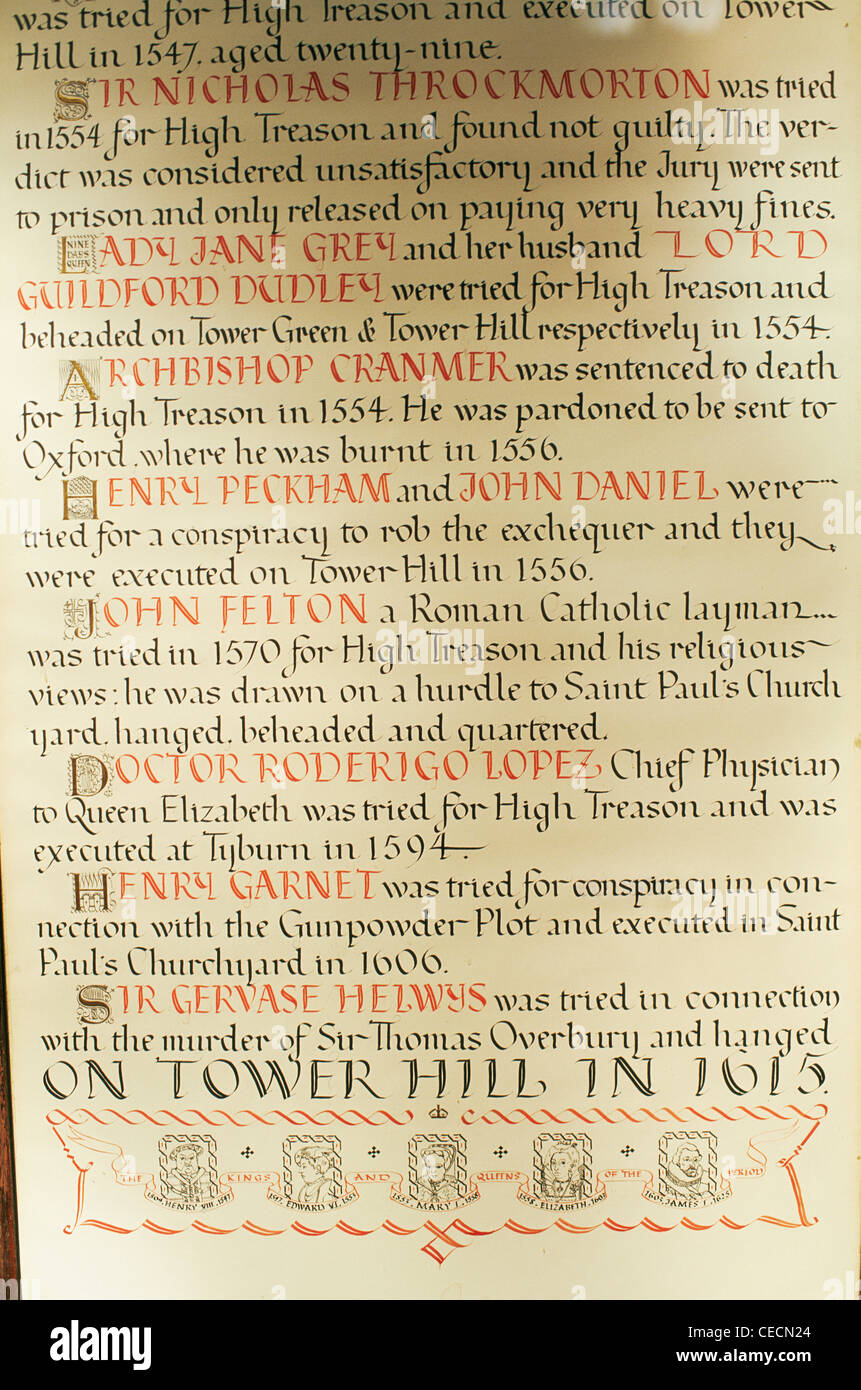 was tried for High Treason and executed on Tower
Hill in 1547. aged twenty-nine.
SIR NICHOLAS THROCKMORTON was tried
in 1554 for High Treason and found not guilty. The ver-
dict was considered unsatisfactory and the Jury were sent
to prison and only released on paying very heavy fines.
LADY JANE GREY and her husband LORD
NINE DAYS QUEEN
GUILDFORD DUDLEY were tried for High Treason and
beheaded on Tower Green & Tower Hill respectively in 1554.
ARCHBISHOP CRANMER was sentenced to death
for High Treason in 1554. He was pardoned to be sent to
Oxford, where he was burnt in 1556.
HENRY PECKHAM and JOHN DANIEL were
tried for a conspiracy to rob the exchequer and they
were executed on Tower Hill in 1556.
JOHN FELTON a Roman Catholic layman
was tried in 1570 for High Treason and his religious
views: he was drawn on a hurdle to Saint Paul's Church
yard. hanged. beheaded and quartered.
DOCTOR RODERIGO LOPEZ Chief Physician
to Queen Elizabeth was tried for High Treason and was
executed at Tyburn in 1594.
HENRY GARNET was tried for conspiracy in con-
nection with the Gunpowder Plot and executed in Saint
Paul's Churchyard in 1606.
SIR GERVASE HELWYS was tried in connection
with the murder of Sir Thomas Overbury and hanged
ON TOWER HILL IN 1615.
THE KINGS AND QUEENS OF THE PERIOD
1509. HENRY VIII. 1547
1547. EDWARD VI. 1553
1553. MARY I. 1558
1558. ELIZABETH. 1603
1603. JAMES I. 1625
alamy
Image ID: CECN24
www.alamy.com